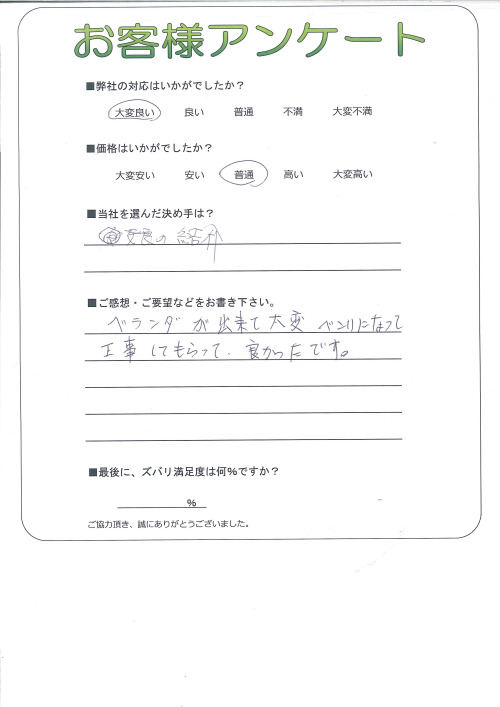 お客様アンケート
■弊社の対応はいかがでしたか？
大変良い 良い 普通 不満 大変不満
■価格はいかがでしたか？
大変安い 安い 普通 高い 大変高い
■当社を選んだ決め手は？
の紹介
■ご感想・ご要望などをお書き下さい。
ベランダが出来て大変 ベンリになって
工事してもらって、良かったです。
■最後に、ズバリ満足度は何%ですか？
%
ご協力頂き、誠にありがとうございました。